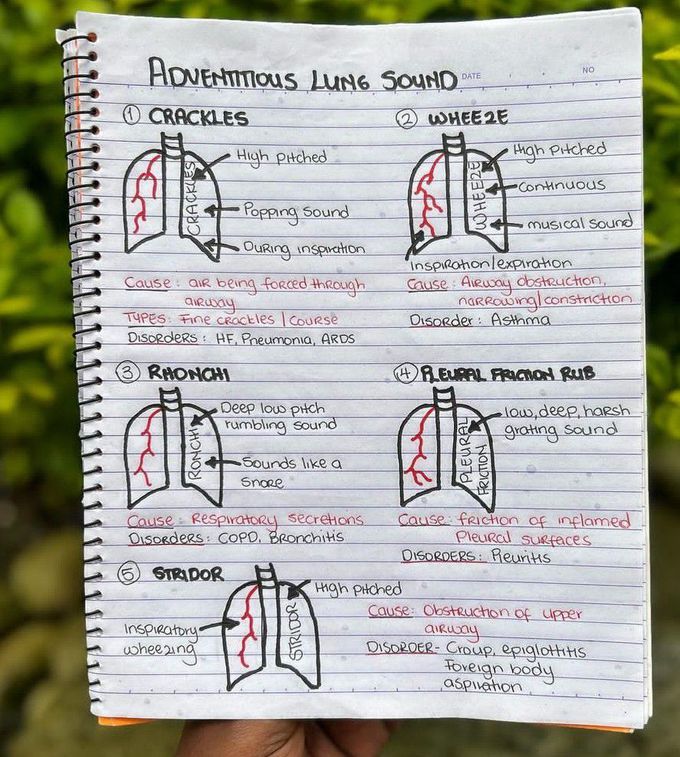 ADVENTITIOUS LUNG SOUND
DATE
NO
① CRACKLES
High pitched
CRACKLES
Popping sound
During inspiration
Cause: air being forced through
airway
TYPES: Fine crackles / Course
Disorders: HF, Pneumonia, ARDS
② WHEEZE
High pitched
WHEEZE
Continuous
musical sound
Inspiration/expiration
Cause: Airway obstruction,
narrowing/constriction
Disorder: Asthma
③ RHONCHI
Deep low pitch
rumbling sound
RONCHI
Sounds like a
Snore
Cause: Respiratory secretions
Disorders: COPD, Bronchitis
④ PLEURAL FRICTION RUB
low, deep, harsh
grating sound
PLEURAL
FRICTION
Cause: friction of inflamed
Pleural surfaces
DISORDERS: Pleuritis
⑤ STRIDOR
High pitched
STRIDOR
Inspiratory
wheezing
Cause: Obstruction of upper
airway
DISORDER- Croup, epiglottitis
Foreign body
aspiration